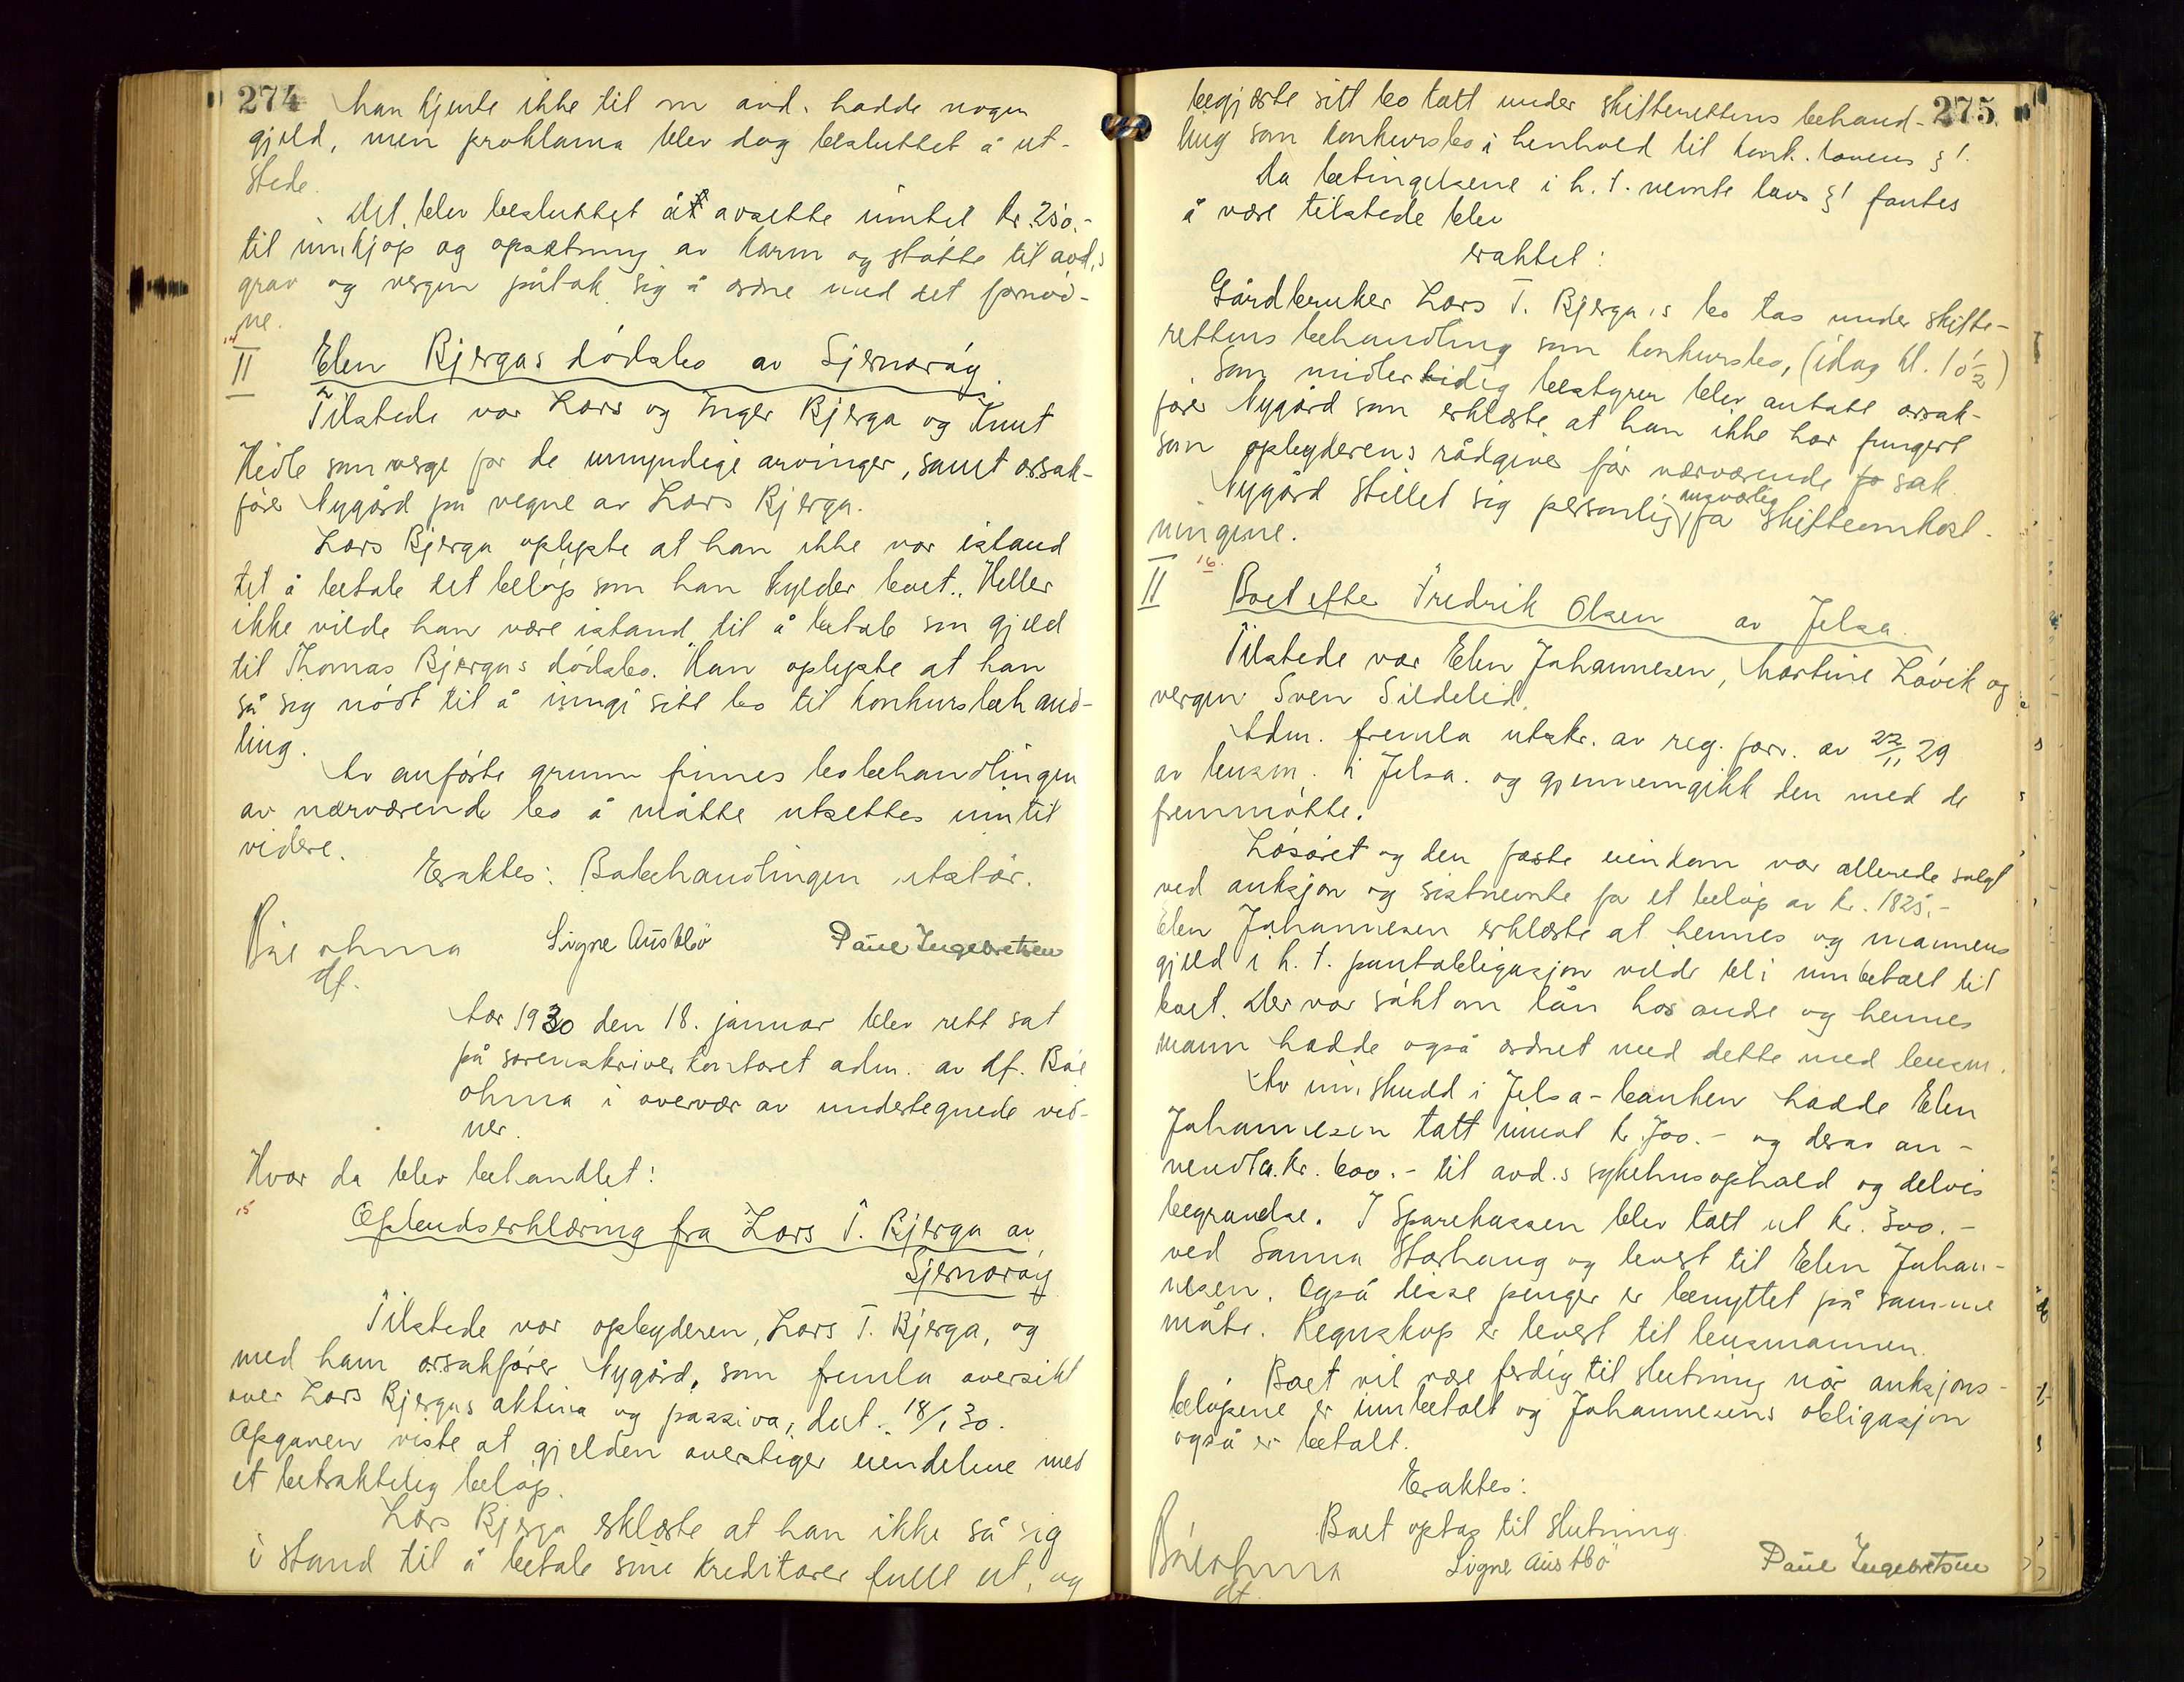 274
han kjente ikke til om avd. hadde nogen
gjeld, men proklama blev dog besluttet å ut-
stede.
Det blev besluttet å avsette inntil kr. 250.-
til innkjøp og opsetning av karm og støtte til avd.s
grav og vergen påtok sig å ordne med det fornød-
ne.
14
II Elen Bjergas dødsbo av Sjernarøy.
Tilstede var Lars og Inger Bjerga og Knut
Hidle som verge for de umyndige arvinger, samt o.r.sak-
fører Nygård på vegne av Lars Bjerga.
Lars Bjerga oplyste at han ikke var istand
til å betale det beløp som han skylder boet. Heller
ikke vilde han være istand til å betale sin gjeld
til Thomas Bjergas dødsbo. Han oplyste at han
så sig nødt til å inngi sitt bo til konkursbehand-
ling.
Av anførte grunn finnes bobehandlingen
av nærværende bo å måtte utsettes inntil
videre.
Eraktes: Bobehandlingen utstår.
Bøe ohma
df.
Signe Austbø
Paul Ingebretsen
Aar 1930 den 18. januar blev rett sat
på sorenskriverkontoret adm. av df. Bøe
ohma i overvær av undertegnede vid-
ner.
Hvor da blev behandlet:
15
Opbudserklæring fra Lars T. Bjerga av
Sjernarøy
Tilstede var opbyderen, Lars T. Bjerga, og
med ham o.r.sakfører Nygård, som fremla oversikt
over Lars Bjergas aktiva og passiva, dat. 18/1 30.
Opgaven viste at gjelden overstiger eiendelene med
et betraktelig beløp.
Lars Bjerga erklærte at han ikke så sig
i stand til å betale sine kreditorer fullt ut, og
275
begjærte sitt bo tatt under skifterettens behand-
ling som konkursbo i henhold til konk. lovens § 1.
Da betingelsene i h. t. nevnte lovs § 1 fantes
å være tilstede blev
eraktet:
Gårdbruker Lars T. Bjerga's bo tas under skifte-
rettens behandling som konkursbo, (idag kl. 10 1/2)
Som midlertidig bestyrer blev antatt o.r.sak-
fører Nygård som erklærte at han ikke har fungert
som opbyderens rådgiver før nærværende sak.
Nygård stillet sig personlig ansvarlig for skifteomkost-
ningene.
16.
II Boet efter Fredrik Olsen av Jelsa.
Tilstede var Elen Johannesen, Martine Løvik og
vergen Sven Sildelid.
Adm. fremla utskr. av reg. forr. av 22/11 29
av lensm. i Jelsa. og gjennemgikk den med de
fremmøtte.
Løsøret og den faste eiendom var allerede solgt
ved auksjon og sistnevnte for et beløp av kr. 1825.-
Elen Johannesen erklærte at hennes og mannens
gjeld i h. t. pantobligasjon vilde bli innbetalt til
boet. Der var søkt om lån hos andre og hennes
mann hadde også ordnet med dette med lensm.
Av innskudd i Jelsa-banken hadde Elen
Johannesen tatt imot kr. 700.- og derav an-
vendt ca. kr. 600.- til avd.s sykehusophold og delvis
begravelse. I Sparekassen blev tatt ut kr. 300.-
ved Sanna Storhaug og levert til Elen Johan-
nesen. Også disse penger er benyttet på samme
måte. Regnskap er levert til lensmannen.
Boet vil være ferdig til slutning når auksjons-
beløpene er innbetalt og Johannesens obligasjon
også er betalt.
Eraktes:
Boet optas til slutning.
Bøe ohma
df
Signe Austbø
Paul Ingebretsen